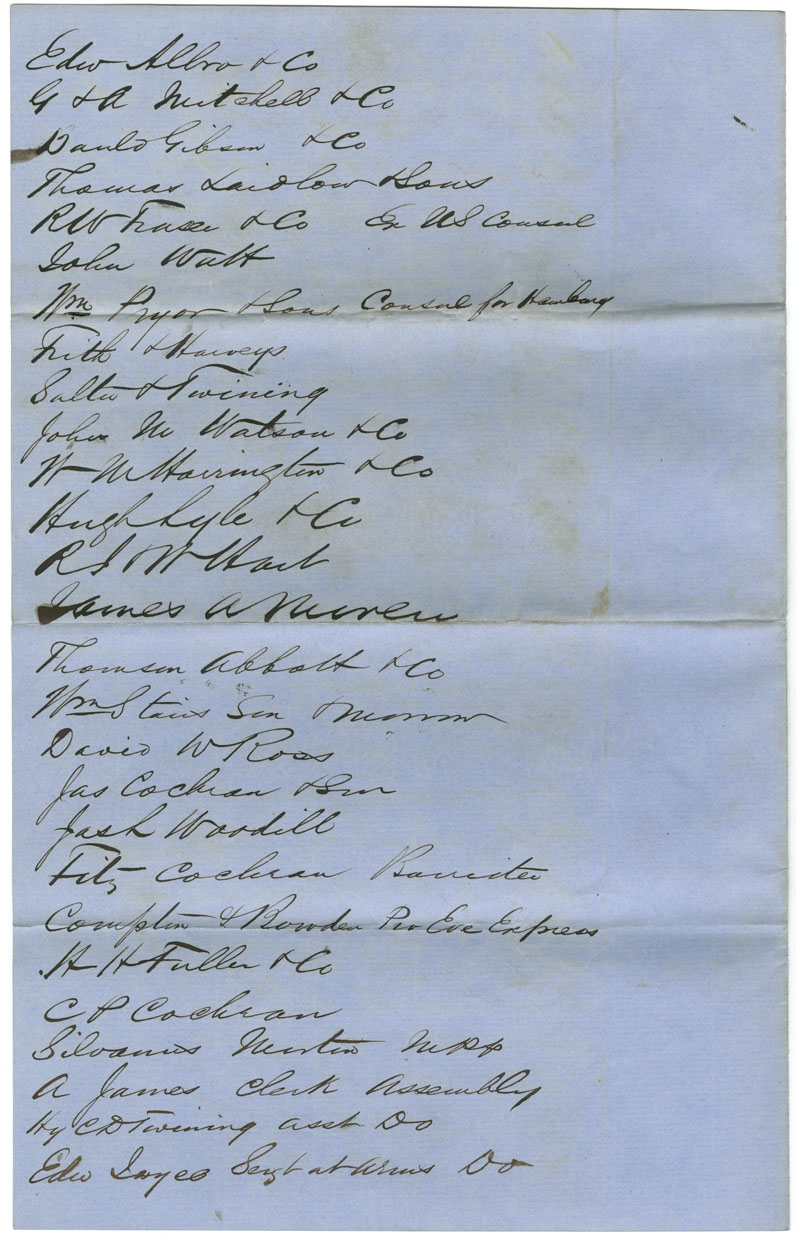 Edw Albro & Co
G & A Mitchell & Co
David Gibson & Co
Thomas Laidlow & Sons
R W Fraser & Co Ex US Consul
John Watt
Wm Pryor & Sons Consul for Hamburg
Frith & Harveys
Salter & Twining
John M Watson & Co
W M Harrington & Co
Hugh Lyle & Co
R I & W Hart
James A Moren
Thomson Abbott & Co
Wm Stairs Son & Morrow
David W Ross
Jas Cochran & Son
Jas H Woodill
Fitz Cochran Barrister
Compton & Bowden Pro Eve Express
H H Fuller & Co
C P Cochran
Silvanus Morton
A James Clerk Assembly
Hy C D Twining asst Do
Edw Joyce Sergt at Arms Do